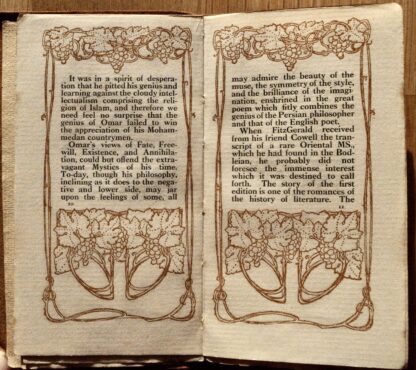 It was in a spirit of despera-
tion that he pitted his genius and
learning against the cloudy intel-
lectualism comprising the reli-
gion of Islam, and therefore we
need feel no surprise that the
genius of Omar failed to win
the appreciation of his Moham-
medan countrymen.
Omar's views of Fate, Free-
will, Existence, and Annihila-
tion, could but offend the extra-
vagant Mystics of his time.
To-day, though his philosophy,
inclining as it does to the nega-
tive and lower side, may jar
upon the feelings of some, all
may admire the beauty of the
muse, the symmetry of the style,
and the brilliance of the imagi-
nation, enshrined in the great
poem which fitly combines the
genius of the Persian philosopher
and that of the English poet.
When FitzGerald received
from his friend Cowell the tran-
script of a rare Oriental MS.,
which he had found in the Bod-
leian, he probably did not
foresee the immense interest
which it was destined to call
forth. The story of the first
edition is one of the romances of
the history of literature. The